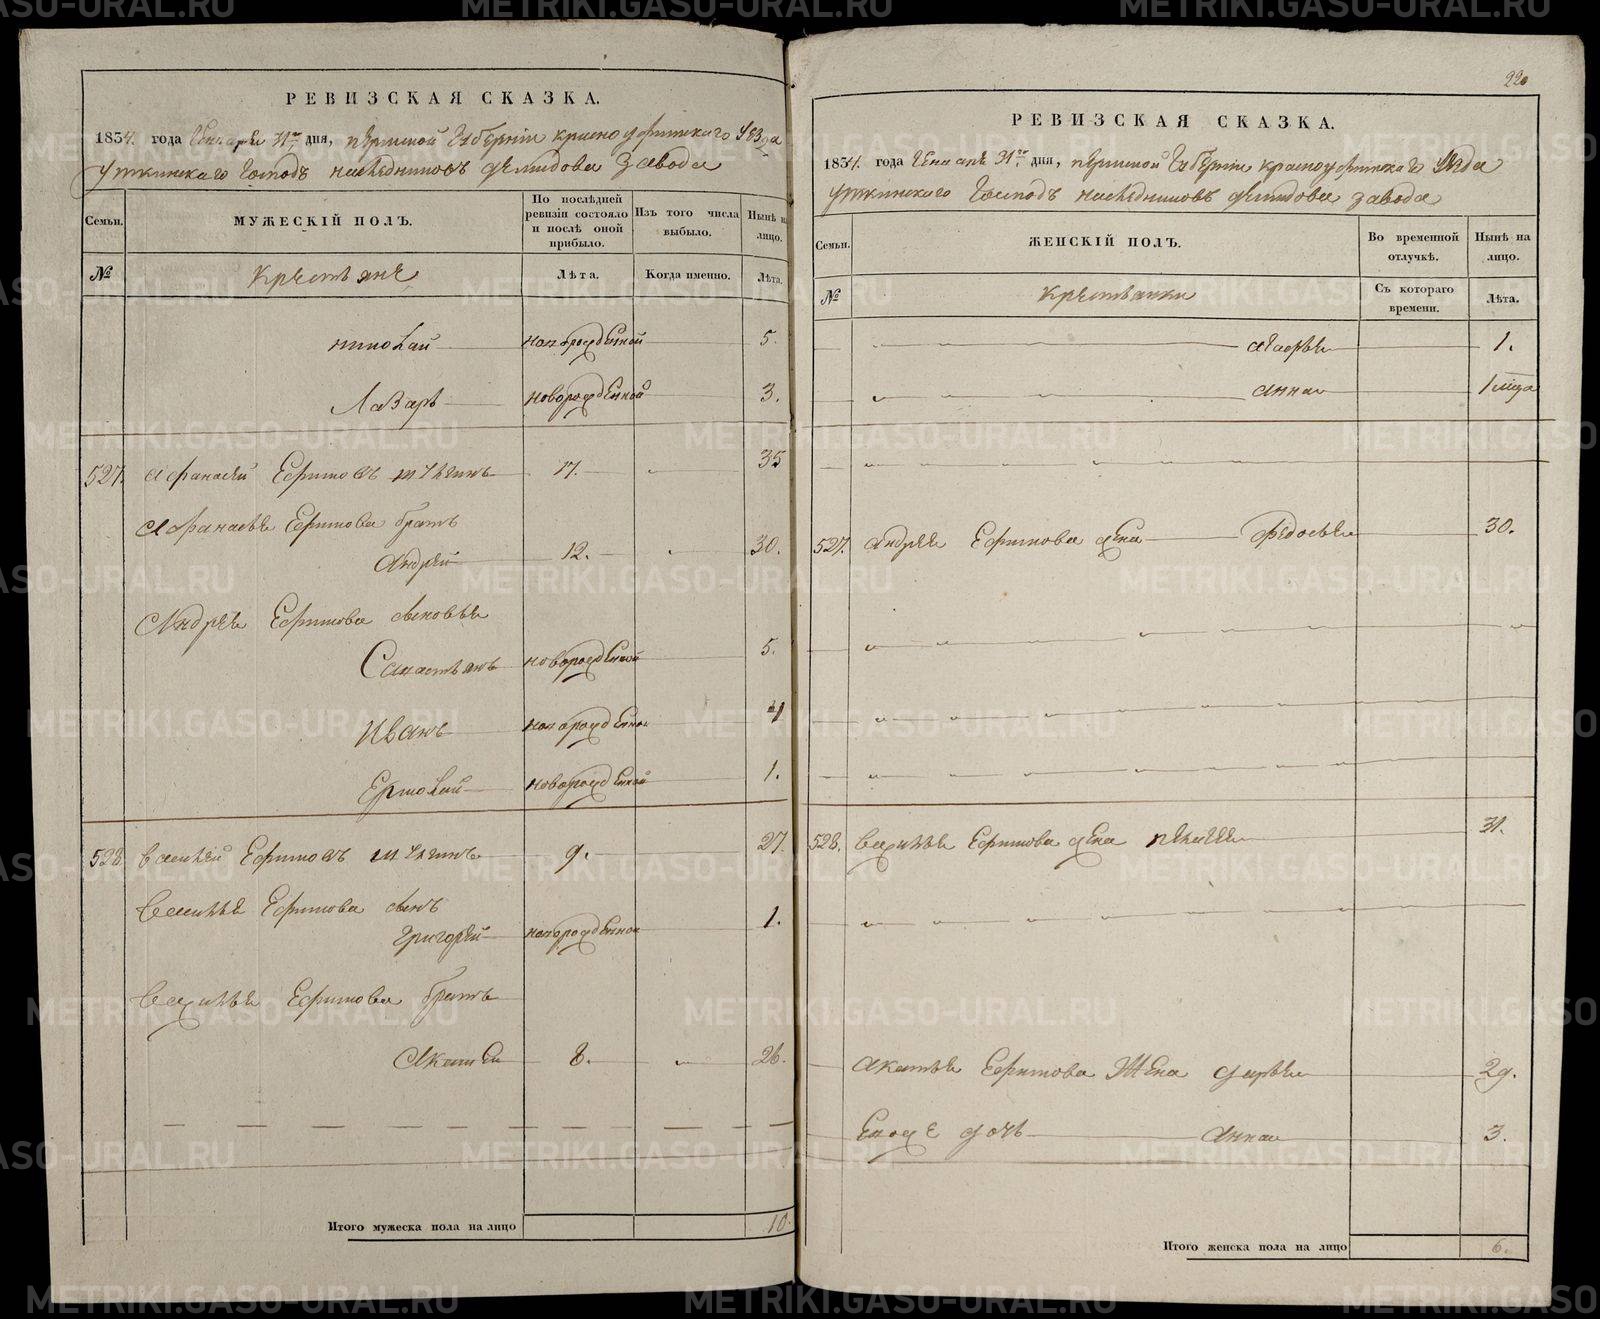 220
РЕВИЗСКАЯ СКАЗКА.
1834. года Генваря 31го дня, Пермской Губерніи Красноуфимскаго Уѣзда
Уткинскаго Господъ наслѣдниковъ Демидова Завода
Семьи.
МУЖЕСКІЙ ПОЛЪ.
По послѣдней ревизіи состояло и послѣ оной прибыло.
Изъ того числа выбыло.
Нынѣ на лицо.
№
Крестьяне
Лѣта.
Когда именно.
Лѣта.
Николай новорожденной 5.
Лазарь новорожденной 3.
527. Афанасей Ефимовъ 17. 35
Афанасья Ефимова братъ
Андрей 12. 30.
Андрея Ефимова сыновья
новорожденной 5.
Иванъ новорожденной 4
Ермолай новорожденной 1.
528 Василей Ефимовъ 9. 27.
Василья Ефимова сынъ
Григорей новорожденной 1.
Василья Ефимова братъ
8. 26.
Итого мужеска пола на лицо 10.
РЕВИЗСКАЯ СКАЗКА.
1834. года Генваря 31го дня, Пермской Губерніи Красноуфимскаго Уѣзда
Уткинскаго Господъ наслѣдниковъ Демидова завода
Семьи.
ЖЕНСКІЙ ПОЛЪ.
Во временной отлучкѣ.
Нынѣ на лицо.
№
Крестьянки
Съ котораго времени.
Лѣта.
1.
Анна 1 мѣца
527. Андрея Ефимова жена Федосья 30.
528. Василья Ефимова жена Пелагея 31.
Ефимова жена Дарья 29.
Еиоже дочь Анна 3.
Итого женска пола на лицо 6.
METRIKI.GASO-URAL.RU